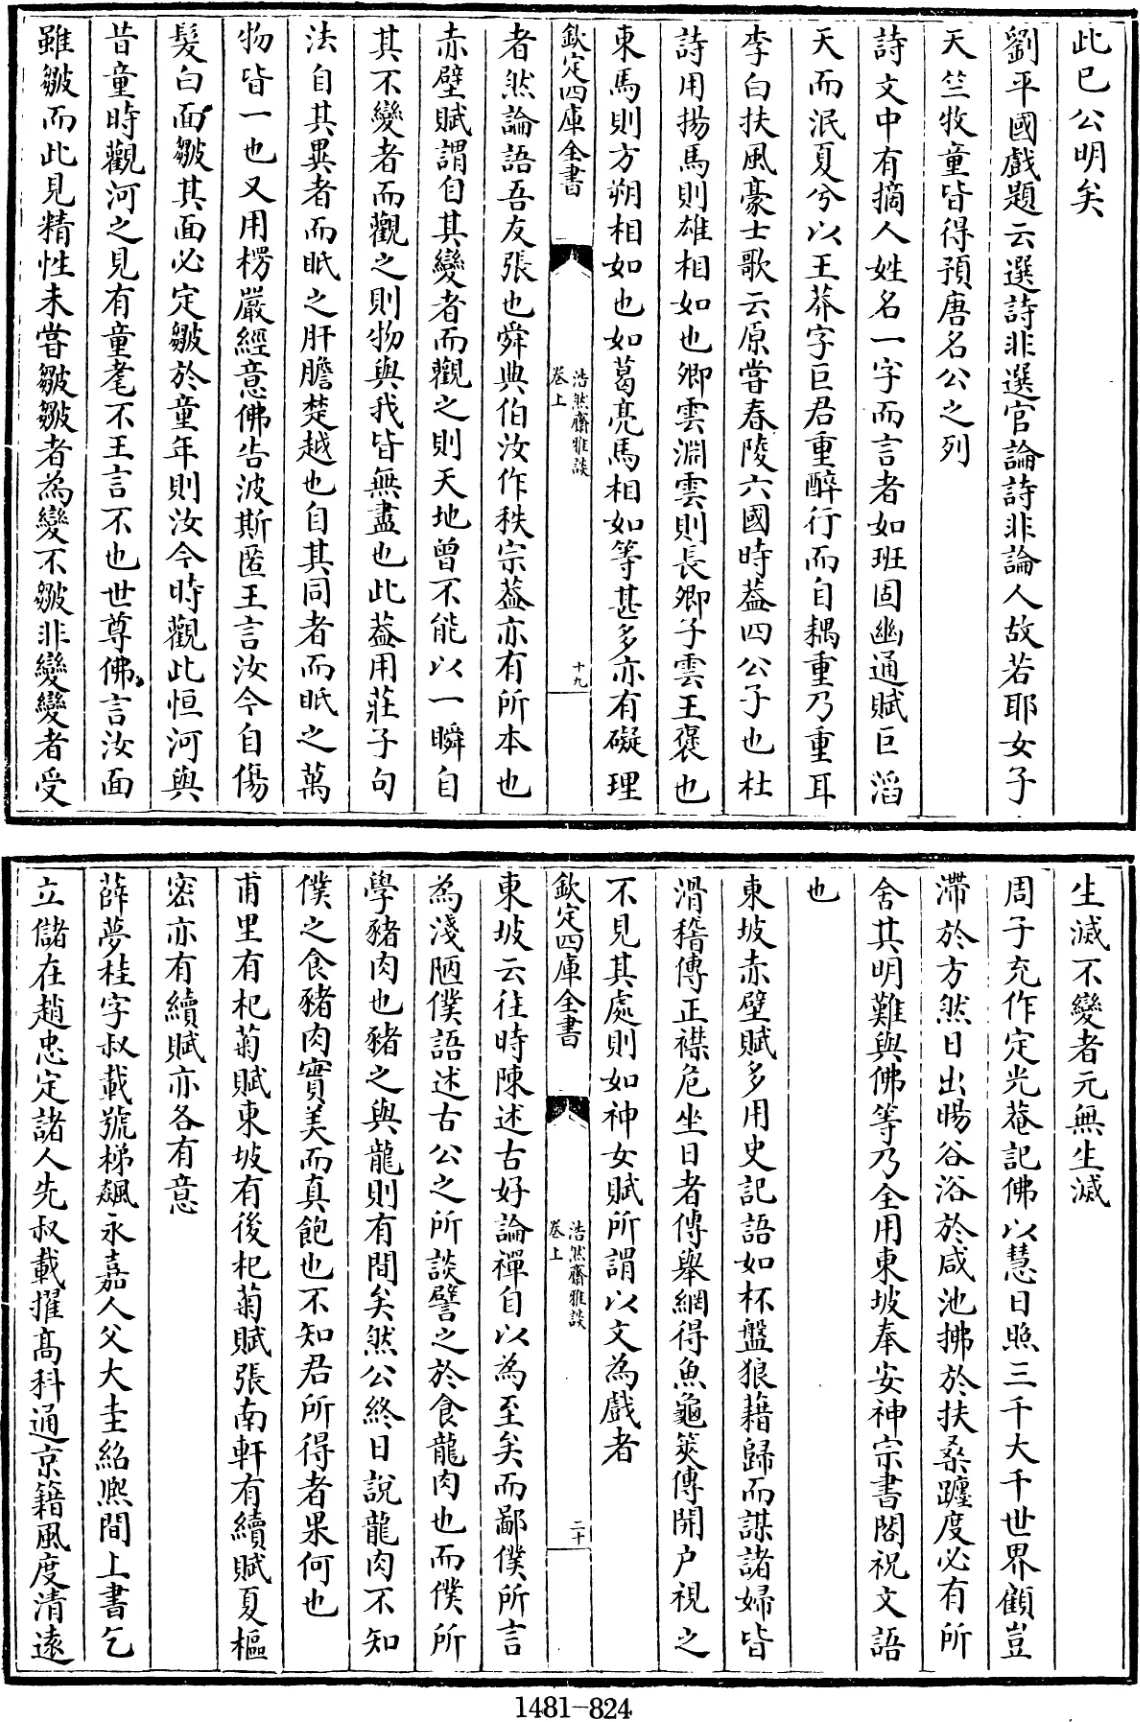 此已公明矣
劉平國戲題云選詩非選官論詩非論人故若耶女子
天竺牧童皆得預唐名公之列
詩文中有摘人姓名一字而言者如班固幽通賦巨滔
天而泯夏兮以王莽字巨君重醉行而自耦重乃重耳
李白扶風豪士歌云原嘗春陵六國時葢四公子也杜
詩用揚馬則雄相如也卿雲淵雲則長卿子雲王褒也
東馬則方朔相如也如葛亮馬相如等甚多亦有礙理
欽定四庫全書
浩然齋雅談
卷上
十九
者然論語吾友張也舜典伯汝作秩宗葢亦有所本也
赤壁賦謂自其變者而觀之則天地曾不能以一瞬自
其不變者而觀之則物與我皆無盡也此葢用莊子句
法自其異者而眡之肝膽楚越也自其同者而眡之萬
物皆一也又用楞嚴經意佛告波斯匿王言汝今自傷
髮白面皺其面必定皺於童年則汝今時觀此恒河與
昔童時觀河之見有童耄不王言不也世尊佛言汝面
雖皺而此見精性未嘗皺皺者為變不皺非變變者受
生滅不變者元無生滅
周子充作定光菴記佛以慧日照三千大千世界顧豈
滯於方然日出暘谷浴於咸池拂於扶桑躔度必有所
舍其明難與佛等乃全用東坡奉安神宗書閣祝文語
也
東坡赤壁賦多用史記語如杯盤狼藉歸而謀諸婦皆
滑稽傳正襟危坐日者傳舉網得魚龜筴傳開户視之
不見其處則如神女賦所謂以文為戲者
欽定四庫全書
浩然齋雅談
卷上
二十
東坡云往時陳述古好論禪自以為至矣而鄙僕所言
為淺陋僕語述古公之所談譬之於食龍肉也而僕所
學豬肉也豬之與龍則有間矣然公終日說龍肉不知
僕之食豬肉實美而真飽也不知君所得者果何也
甫里有杞菊賦東坡有後杞菊賦張南軒有續賦夏樞
密亦有續賦亦各有意
薛夢桂字叔載號梯飇永嘉人父大圭紹熙間上書乞
立儲在趙忠定諸人先叔載擢髙科通京籍風度清遠
1481-824